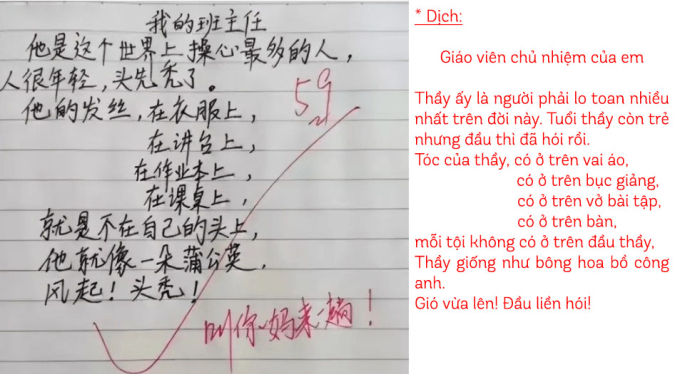 我的班主任
他是这个世界上操心最多的人，
人很年轻，头先秃了。
59
他的发丝，在衣服上，
在讲台上，
在作业本上，
在课桌上，
就是不在自己的头上，
他就像一朵蒲公英，
风起！头秃！
叫你妈来一趟！
* Dịch:
Giáo viên chủ nhiệm của em
Thầy ấy là người phải lo toan nhiều
nhất trên đời này. Tuổi thầy còn trẻ
nhưng đầu thì đã hói rồi.
Tóc của thầy, có ở trên vai áo,
có ở trên bục giảng,
có ở trên vở bài tập,
có ở trên bàn,
mỗi tội không có ở trên đầu thầy,
Thầy giống như bông hoa bồ công
anh.
Gió vừa lên! Đầu liền hói!